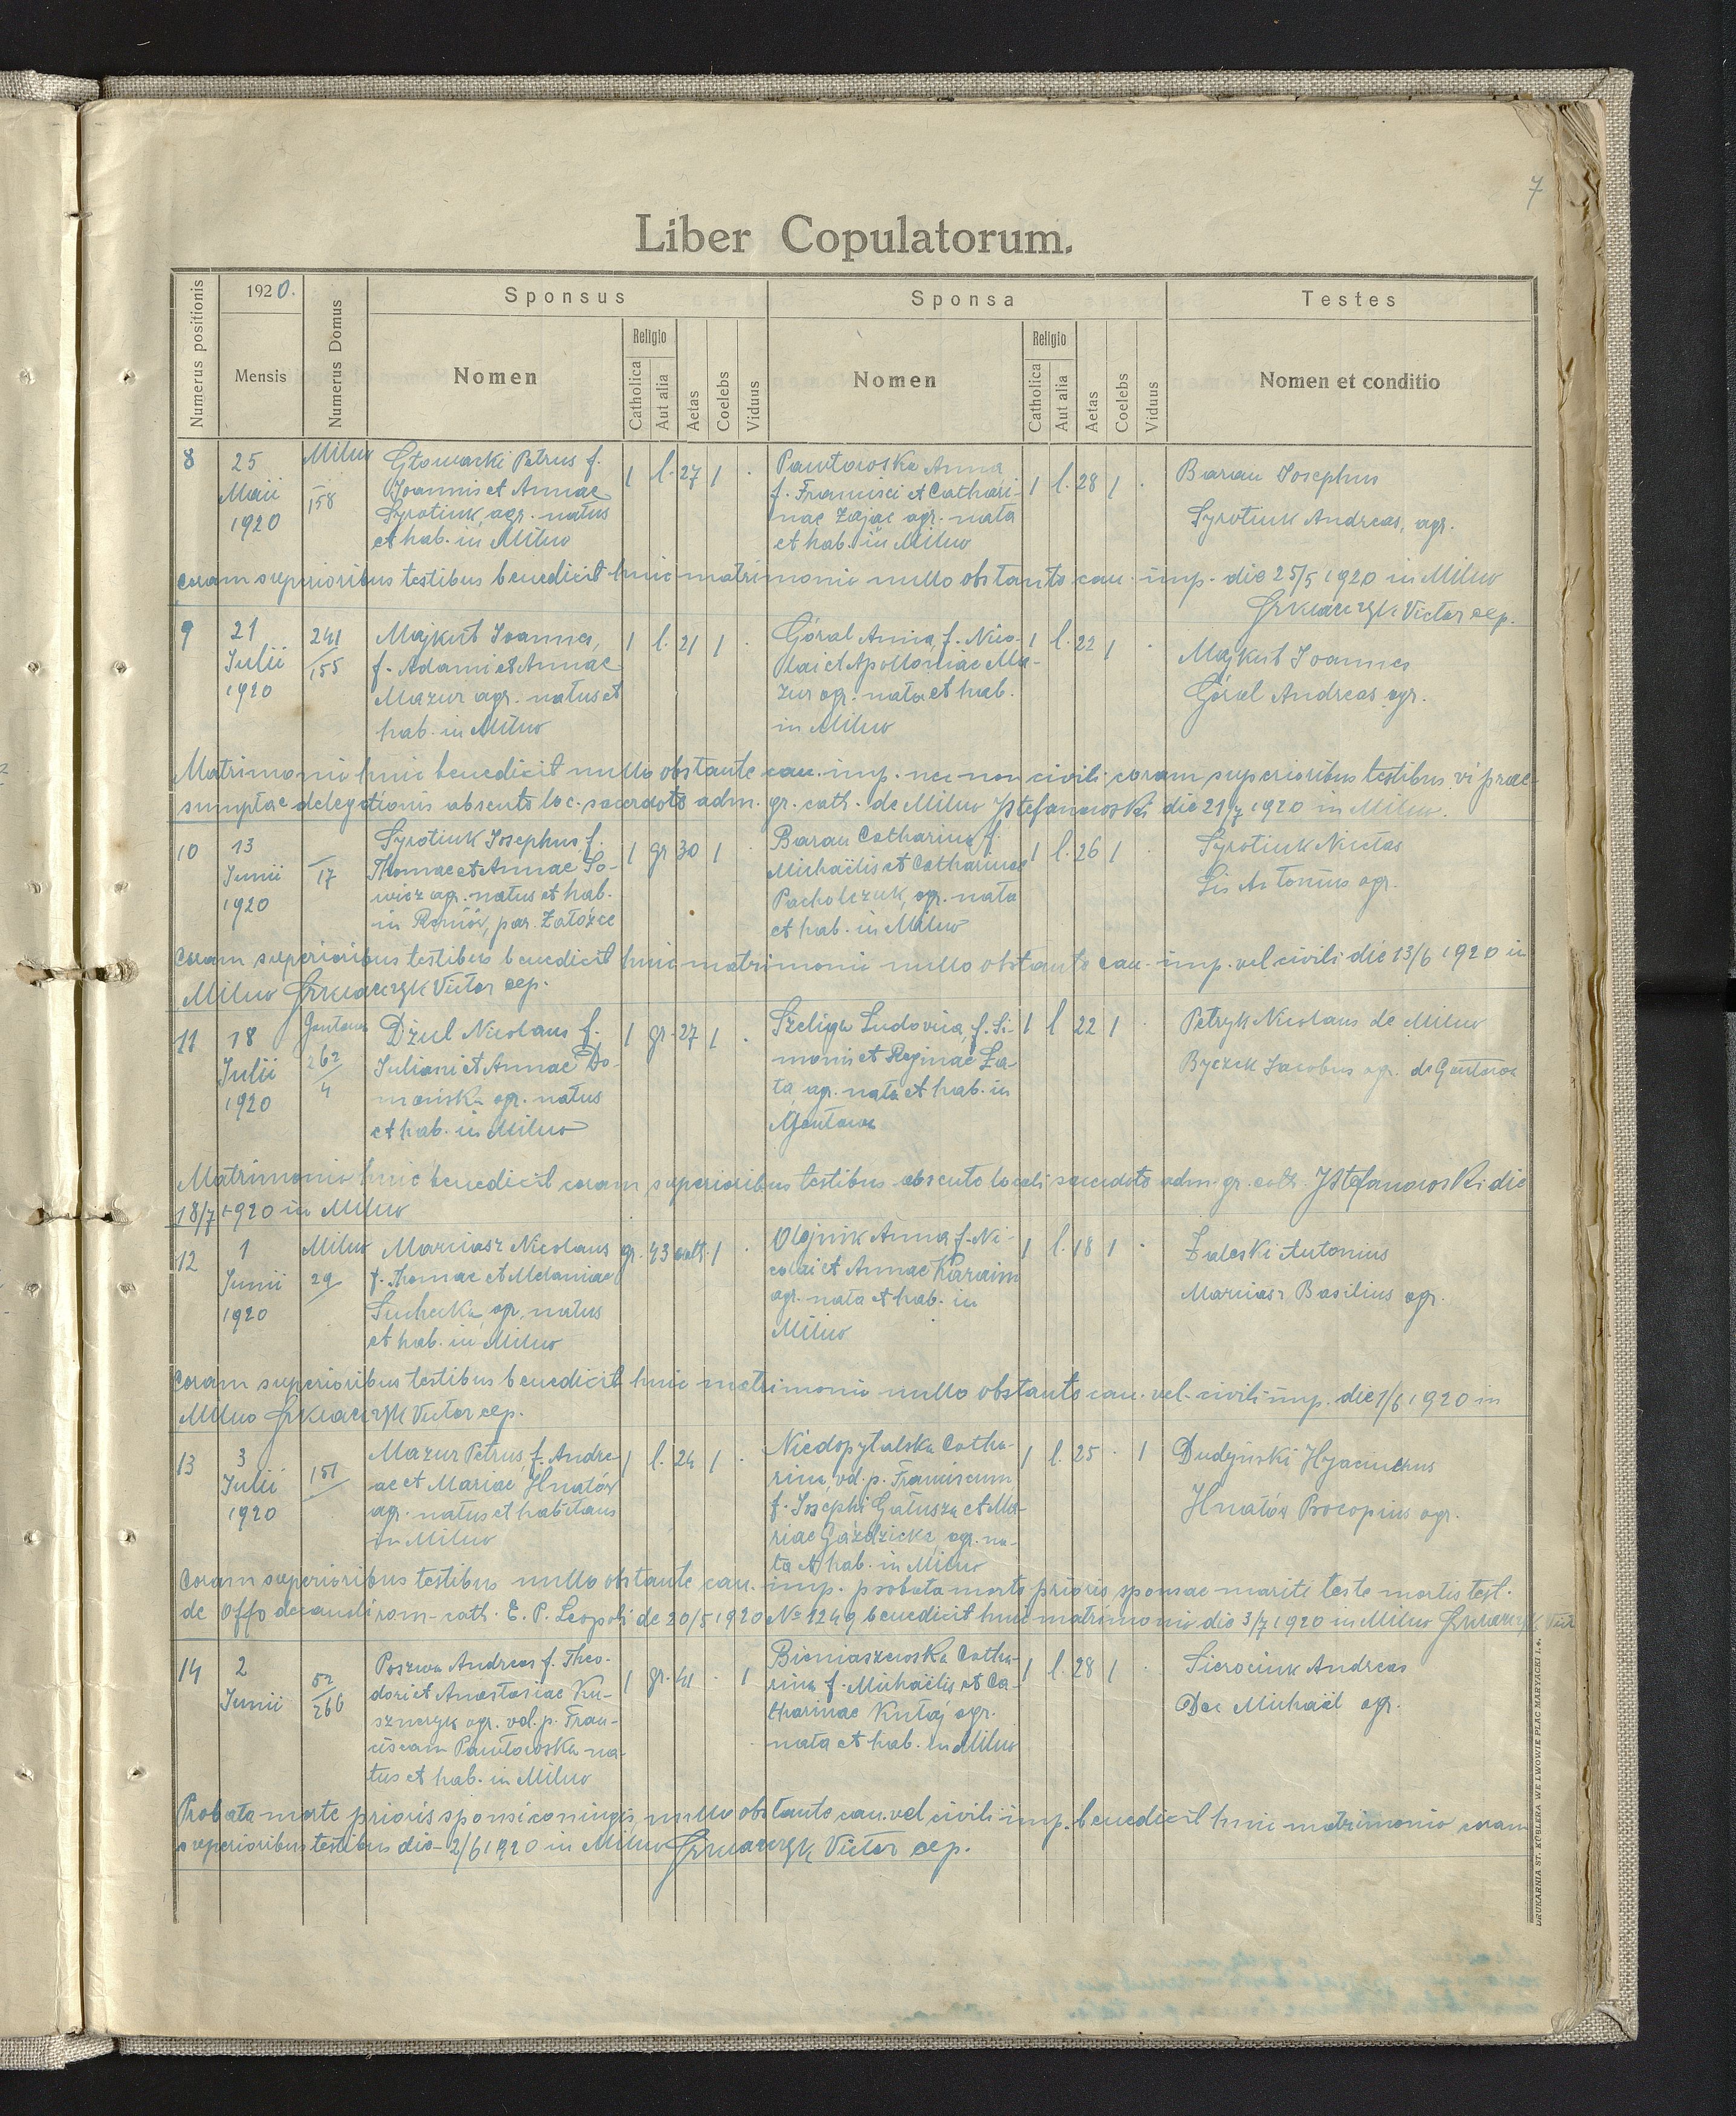 7
Liber Copulatorum.
Numerus positionis
1920.
Mensis
Numerus Domus
Sponsus
Nomen
Religio
Catholica
Aut alia
Aetas
Coelebs
Viduus
Sponsa
Nomen
Religio
Catholica
Aut alia
Aetas
Coelebs
Viduus
Testes
Nomen et conditio
8
25
Maii
1920
Milno
158
Głowacki Petrus f.
Joannis et Annae
Syrotiuk, agr. natus
et hab. in Milno
1 l. 27 1 .
Pawłowska Anna
f. Francisci et Cathari-
nae Zając agr. nata
et hab. in Milno
1 l. 28 1 .
Baran Josephus
Syrotiuk Andreas, agr.
coram superioribus testibus benedicit huic matrimonio nullo obstante can. imp. die 25/5 1920 in Milno
Victor cep.
9
21
Julii
1920
241
155
Majkut Joannes,
f. Adami et Annae
Mazur agr. natus et
hab. in Milno
1 l. 21 1 .
Góral Anna, f. Nico-
lai et Apolloniae Ma-
zur agr. nata et hab.
in Milno
1 l. 22 1 .
Majkut Joannes
Góral Andreas agr.
Matrimonio huic benedicit nullo obstante can. imp. nec non civili coram superioribus testibus vi prae-
sumptae delegationis absente loc. sacerdote adm. gr. cath. de Milno JStefanowski die 21/7 1920 in Milno.
10
13
Junii
1920
17
Syrotiuk Josephus f.
Thomae et Annae So-
wicz agr. natus et hab.
in Reniów, par. Załoźce
1 gr 30 1 .
Baran Catharina f.
Michaëlis et Catharinae
Pacholczuk, agr. nata
et hab. in Milno
1 l. 26 1 .
Syrotiuk Nicetas
Lis Antonius agr.
Coram superioribus testibus benedicit huic matrimonio nullo obstante can. imp. vel civili die 13/6 1920 in
Milno Victor cep.
11
18
Julii
1920
Gontowa
262
4
Dziul Nicolaus f.
Juliani et Annae Do-
mańska agr. natus
et hab. in Milno
1 gr. 27 1 .
Szeliga Ludovica, f. Si-
monis et Reginae Ła-
ta agr. nata et hab. in
Gontowa
1 l 22 1 .
Petryk Nicolaus de Milno
Byczek Jacobus agr. de Gontowa
Matrimonio huic benedicit coram superioribus testibus absente locali sacerdote adm. gr. cath. JStefanowski die
18/7 1920 in Milno
12
1
Junii
1920
Milno
29
Marciasz Nicolaus
f. Thomae et Melaniae
Suchecka, agr. natus
et hab. in Milno
gr. 43 cath. 1 .
Olejnik Anna f. Ni-
colai et Annae Karaim
agr. nata et hab. in
Milno
1 l. 18 1 .
Zaleski Antonius
Marciasz Basilius agr.
Coram superioribus testibus benedicit huic matrimonio nullo obstante can. vel civili imp. die 1/6 1920 in
Milno Victor cep.
13
3
Julii
1920
151
Mazur Petrus f. Andre-
ae et Mariae Hnatów
agr. natus et habitans
in Milno
1 l. 24 1 .
Niedopytalska Catha-
rina, vd. p. Franciscum
f. Josephi Gałusza et Ma-
riae Gaździcka, agr. na-
ta et hab. in Milno
1 l. 25 . 1
Dudyński Hyacinthus
Hnatów Procopius agr.
Coram superioribus testibus nullo obstante can. imp. probata morte prioris sponsae mariti teste mortis test.
de Offo decanali rom-cath. E. P. Leopoli de 20/5 1920 No 1249 benedicit huic matrimonio die 3/7 1920 in Milno
14
2
Junii
52
266
Poszwa Andreas f. Theo-
dori et Anastasiae Ku-
sznczyk agr. vd. p. Fran-
ciscam Pawłowska na-
tus et hab. in Milno
1 gr. 41 . 1
Bieniaszewska Catha-
rina f. Michaëlis et Ca-
tharinae Kutaj agr.
nata et hab. in Milno
1 l. 28 1 .
Sierociuk Andreas
Dec Michaël agr.
Probata morte prioris sponsi coniugis nullo obstante can. vel civili imp. benedicit huic matrimonio coram
superioribus testibus die 2/6 1920 in Milno Victor cep.
DRUKARNIA ST. KÜBLERA WE LWOWIE PLAC MARYACKI